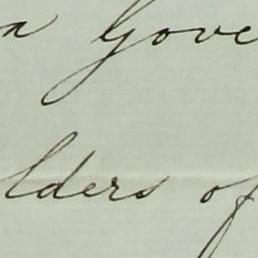 n Gove
lders of